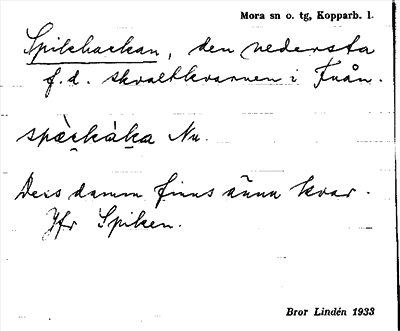 Mora sn o. tg, Kopparb. l.
Spikbackan, den nedersta
f.d. skvaltkvarnen i Fuån.
spę̀ckàka Nu.
Dess damm finns ännu kvar.
Jfr Spiken.
Bror Lindén 1933